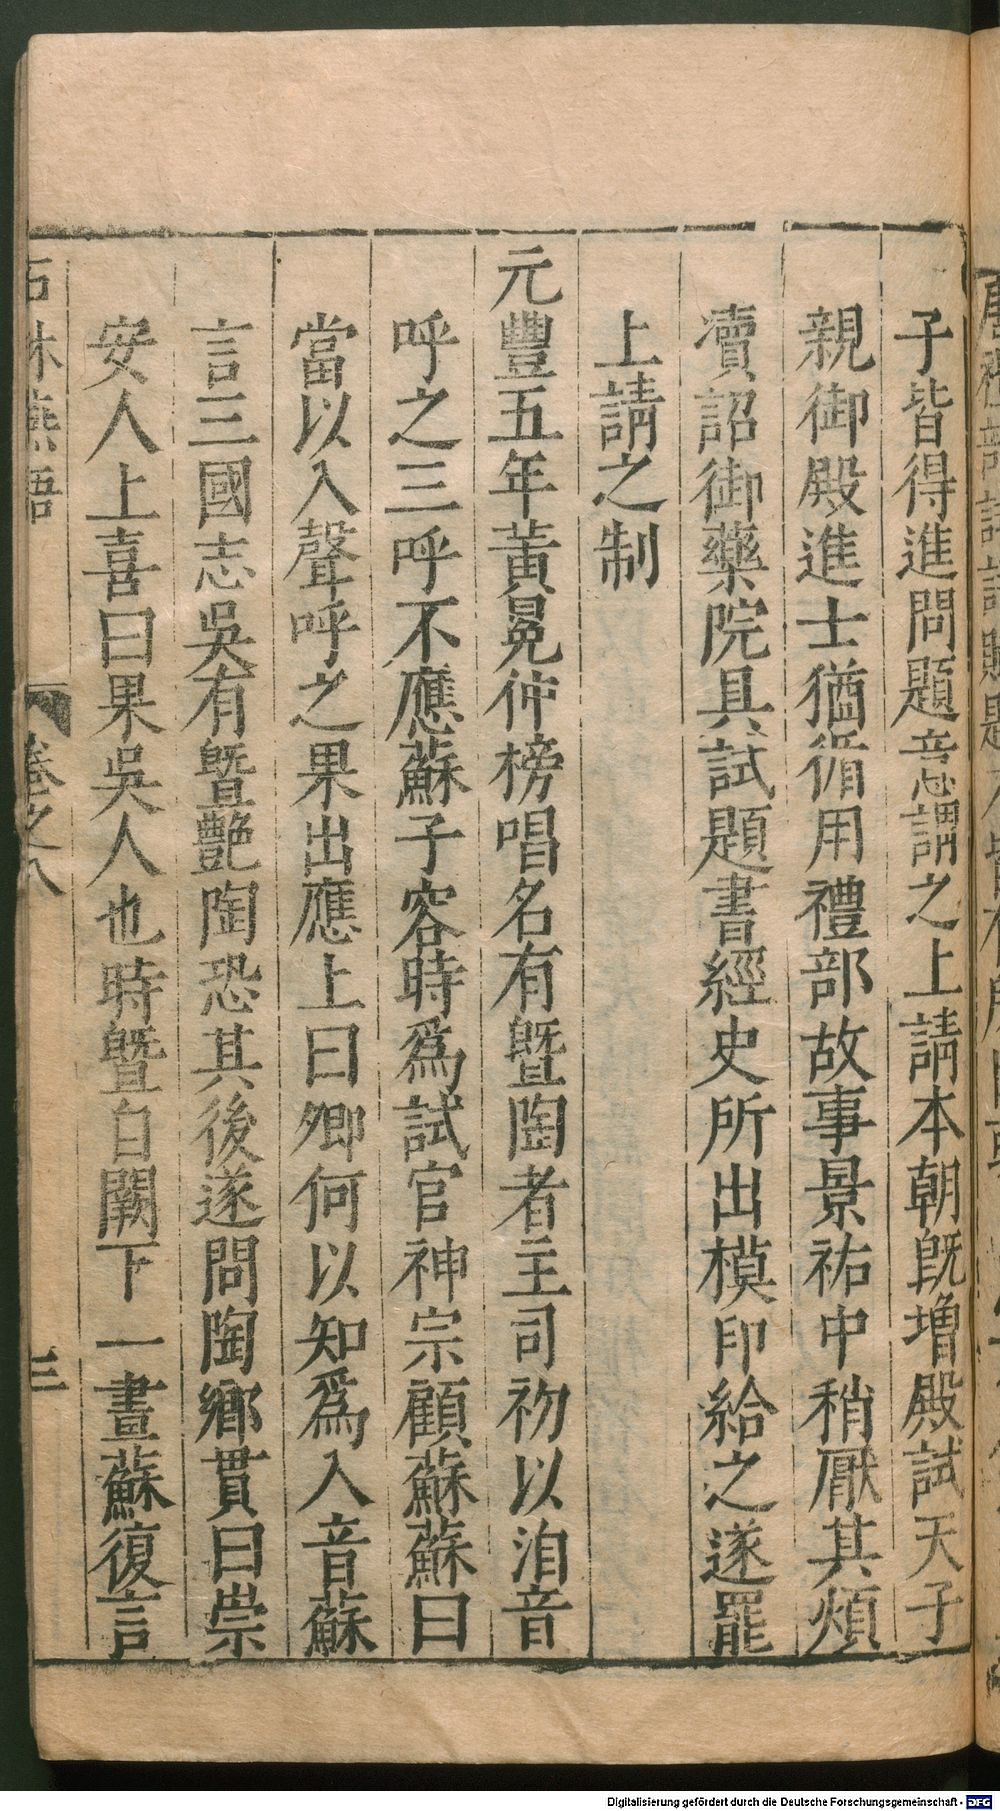 子皆得進問題意謂之上請本朝旣增殿試天子
親御殿進士猶循用禮部故事景祐中稍厭其煩
瀆詔御藥院具試題書經史所出模印給之遂罷
上請之制
元豐五年黃冕仲榜唱名有曁陶者主司初以洎音
呼之三呼不應蘇子容時爲試官神宗顧蘇蘇曰
當以入聲呼之果出應上曰卿何以知爲入音蘇
言三國志吳有曁艷陶恐其後遂問陶鄉貫曰崇
安人上喜曰果吳人也時曁自闕下一畫蘇復言
石林燕語 卷之八 三
Digitalisierung gefördert durch die Deutsche Forschungsgemeinschaft - DFG